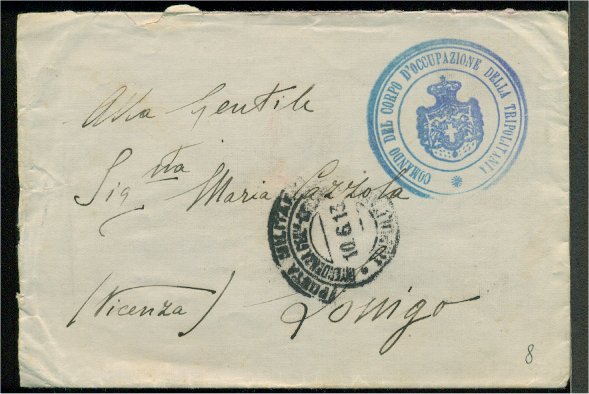 COMANDO DEL CORPO D'OCCUPAZIONE DELLA TRIPOLITANIA
Alla Gentile
Sig.na Maria Cazzola
POSTA MILITARE
10.6.13
(Vicenza) Lonigo
8